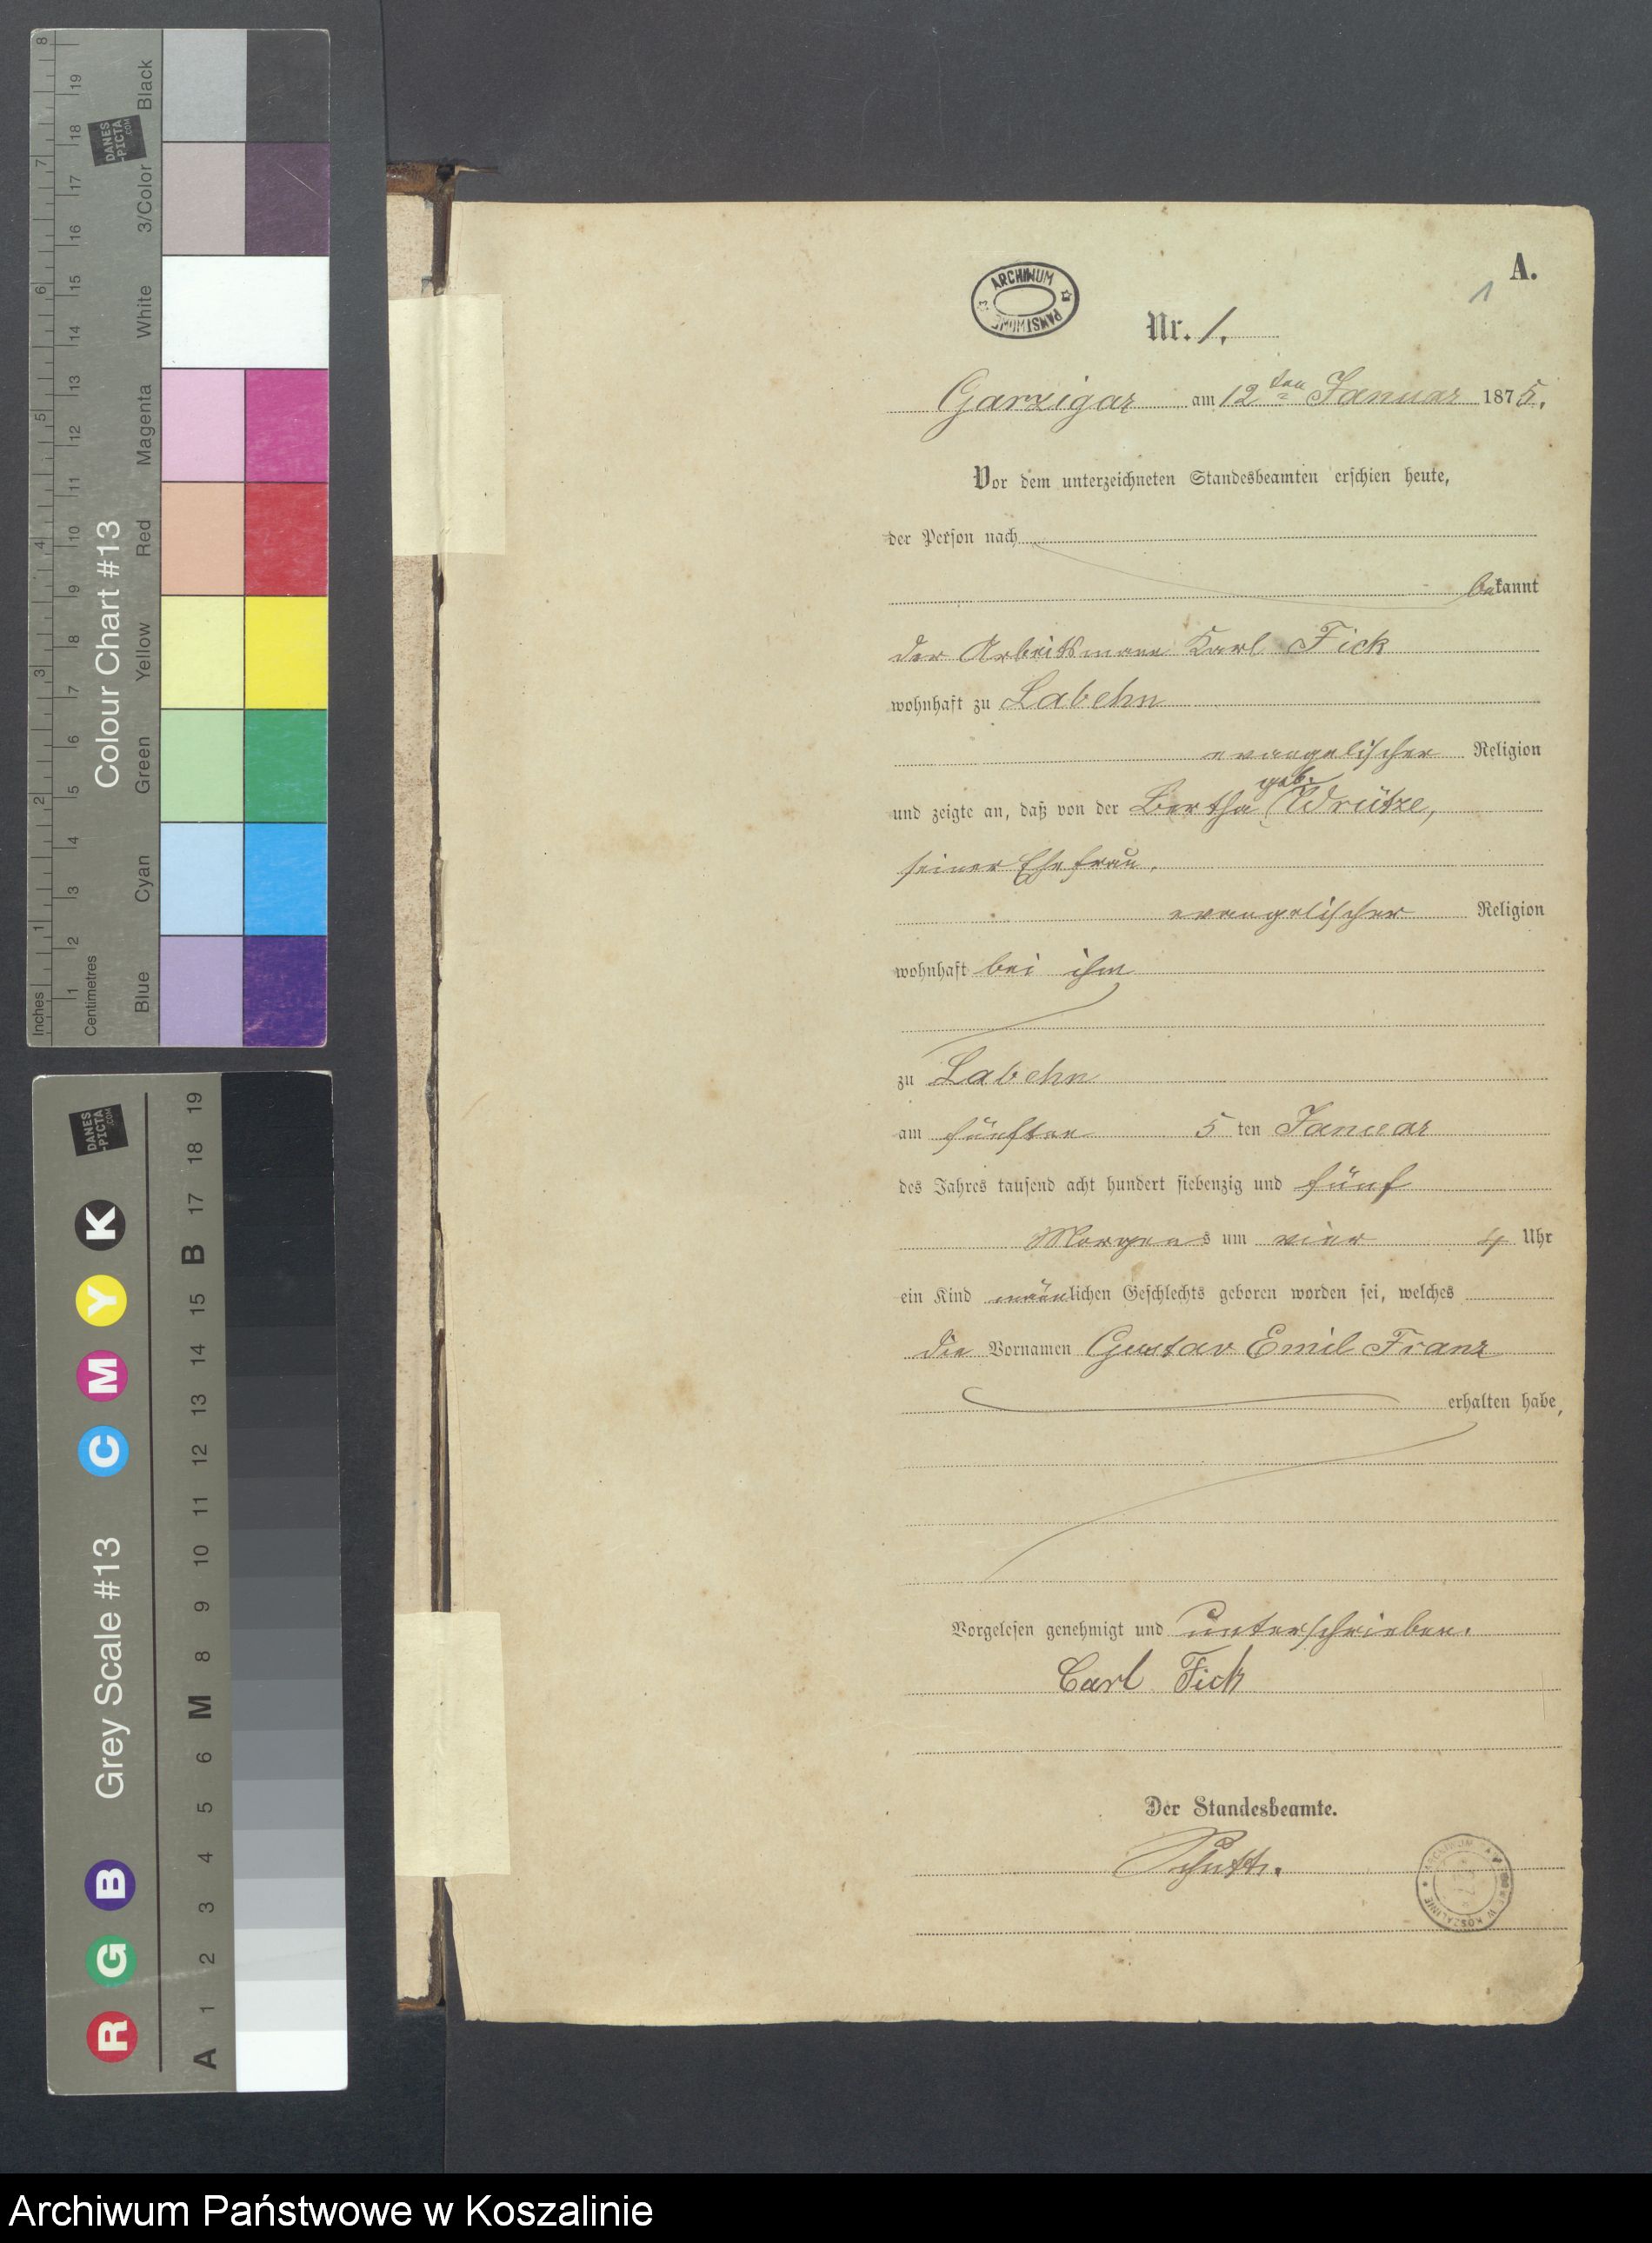 A.
1
ARCHIWUM PAŃSTWOWE
Nr. 1.
Garzigar am 12ten Januar 1875.
Vor dem unterzeichneten Standesbeamten erschien heute,
der Person nach
bekannt
der Arbeitsmann Karl Fick
wohnhaft zu Labehn
evangelischer Religion
geb.
und zeigte an, daß von der Bertha Wrütze,
seiner Ehefrau,
evangelischer Religion
wohnhaft bei ihm
zu Labehn
am fünften 5 ten Januar
des Jahres tausend acht hundert siebenzig und fünf
Morgens um vier 4 Uhr
ein Kind männlichen Geschlechts geboren worden sei, welches
die Vornamen Gustav Emil Franz
erhalten habe,
Vorgelesen genehmigt und unterschrieben.
Carl Fick
Der Standesbeamte.
ARCHIWUM PAŃSTWOWE W KOSZALINIE
Colour Chart #13
Blue Cyan Green Yellow Red Magenta White 3/Color Black
Inches 1 2 3 4 5 6 7 8
Centimetres 1 2 3 4 5 6 7 8 9 10 11 12 13 14 15 16 17 18 19
DANES-PICTA.COM
Grey Scale #13
R G B C M Y K
A 1 2 3 4 5 6 M 8 9 10 11 12 13 14 15 B 17 18 19
DANES-PICTA.COM
Archiwum Państwowe w Koszalinie